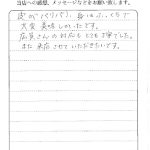 当店への感想、メッセージなどをお願い致します。
皮がパリパリ、身はふっくらで
大変美味しかったです。
店員さんの対応もとても丁寧でした。
また来店させていただきたいです。